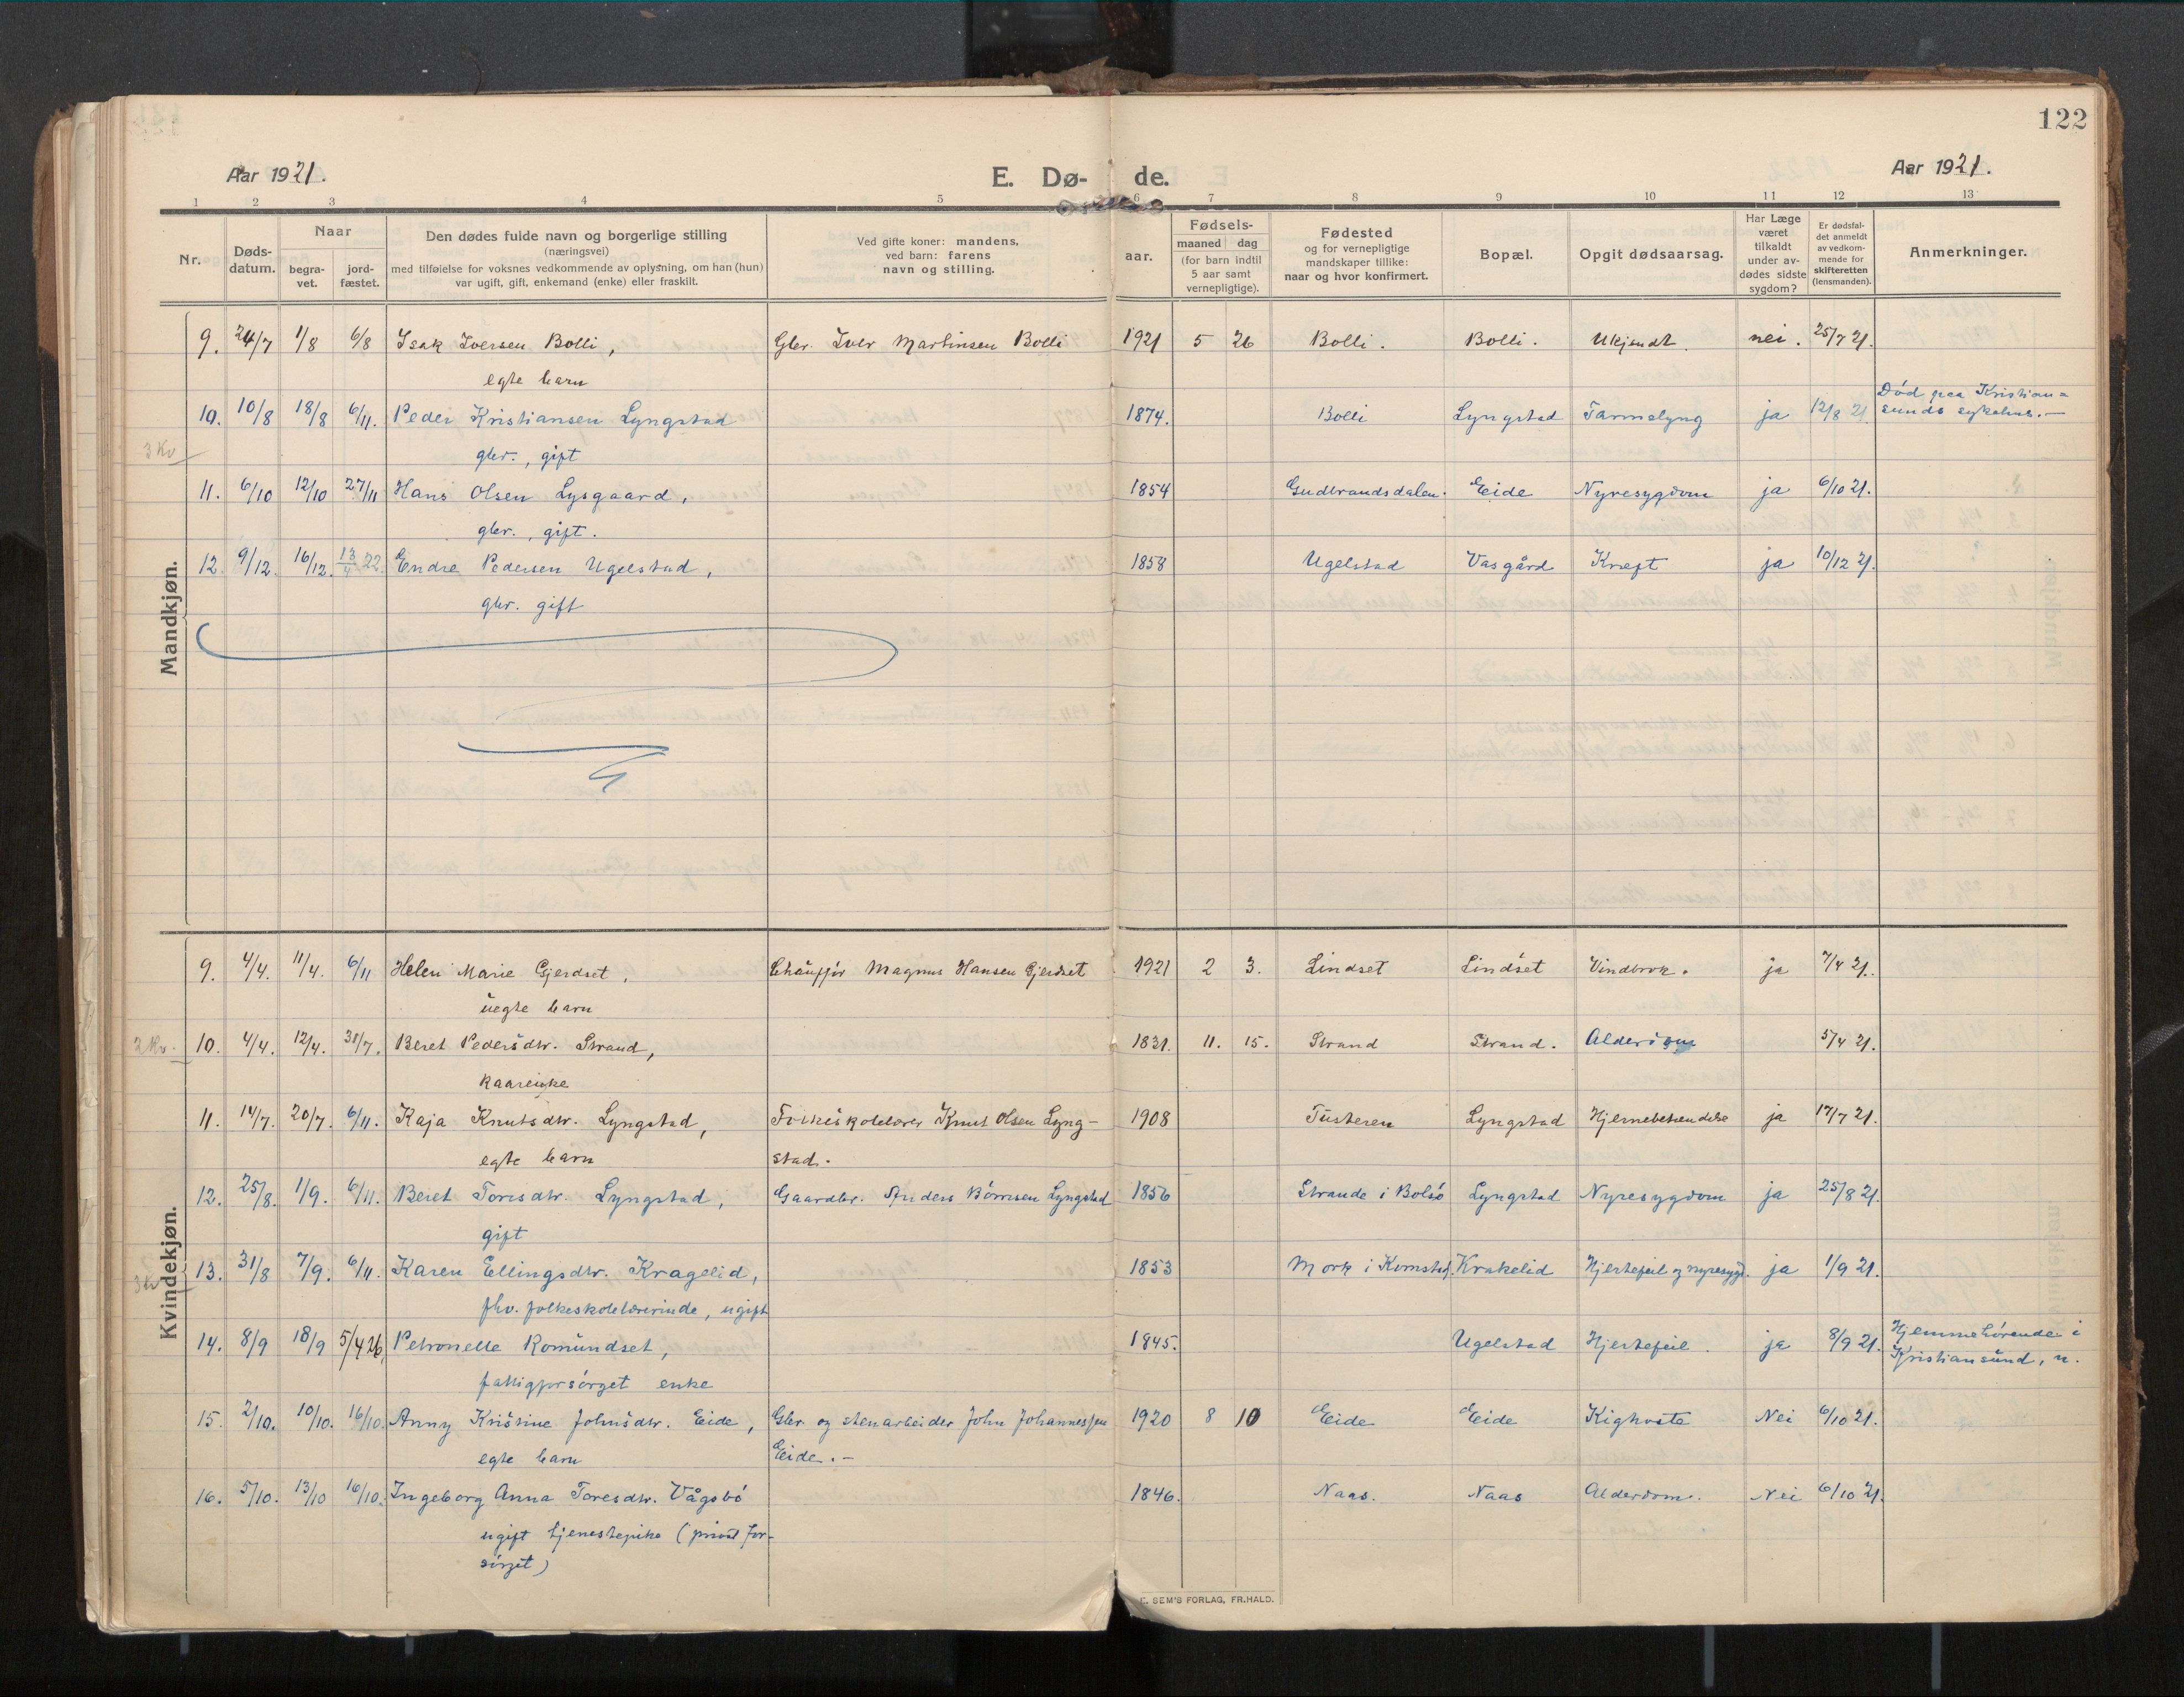 122
Aar 1921.
E. Dø- de.
Aar 1921.
1 2 3 4 5 6 7 8 9 10 11 12 13
Nr.
Døds-
datum.
Naar
begra-
vet.
jord-
fæstet.
Den dødes fulde navn og borgerlige stilling
(næringsvei)
med tilføielse for voksnes vedkommende av oplysning, om han (hun)
var ugift, gift, enkemand (enke) eller fraskilt.
Ved gifte koner: mandens,
ved barn: farens
navn og stilling.
Fødsels-
aar.
maaned dag
(for barn indtil
5 aar samt
vernepligtige).
Fødested
og for vernepligtige
mandskaper tillike:
naar og hvor konfirmert.
Bopæl.
Opgit dødsaarsag.
Har Læge
været
tilkaldt
under av-
dødes sidste
sygdom?
Er dødsfal-
det anmeldt
av vedkom-
mende for
skifteretten
(lensmanden).
Anmerkninger.
Mandkjøn.
9. 24/7 1/8 6/8 Isak Iversen Bolli, Gbr. Iver Martinsen Bolli 1921 5 26 Bolli. Bolli. Ukjendt. nei. 25/7 21.
egte barn
Død paa Kristian=
10. 10/8 18/8 6/11. Peder Kristiansen Lyngstad 1874. Bolli Lyngstad Tarmslyng ja 12/8 21. sunds sykehus.—
3 Kv gbr., gift
11. 6/10 12/10 27/11 Hans Olsen Lysgaard, 1854 Gudbrandsdalen. Eide Nyresygdom ja 6/10 21.
gbr., gift.
12. 9/12. 16/12. 13/4 22. Endre Pedersen Ugelstad, 1858 Ugelstad Vasgård Kreft ja 10/12 21.
gbr. gift
Kvindekjøn.
9. 4/4. 11/4. 6/11 Helen Marie Gjerdset, Chauffør Magnus Hansen Gjerdset 1921 2 3. Lindset Lindset Vindbrok. ja 7/4 21.
uegte barn
2 Kv. 10. 4/4. 12/4. 31/7. Beret Pedersdtr. Strand, 1831. 11. 15. Strand Strand. Alderdom 5/4 21.
kaarenke
11. 14/7. 20/7. 6/11. Kaja Knutsdtr. Lyngstad, Folkeskolelærer Knut Olsen Lyng- 1908 Tusteren Lyngstad Hjernebetændelse ja 17/7 21.
egte barn stad.
12. 25/8. 1/9. 6/11. Beret Toresdtr. Lyngstad, Gaardbr. Anders Børresen Lyngstad 1856 Strande i Bolsø Lyngstad Nyresygdom ja 25/8 21.
gift
3 Kv 13. 31/8 7/9. 6/11. Karen Ellingsdtr. Kragelid, 1853 Mork i Kornstad. Krakelid Hjertefeil og nyresygd. ja 1/9 21.
fhv. folkeskolelærerinde, ugift
14. 8/9 18/9 5/4 26, Petronelle Romundset, 1845. Ugelstad Hjertefeil. ja 8/9 21. Hjemmehørende i
fattigforsørget enke Kristiansund, n.
15. 2/10. 10/10. 16/10. Anny Kristine Johnsdtr. Eide, Gbr. og stenarbeider John Johannessen 1920 8 10 Eide Eide Kighoste Nei 6/10 21.
egte barn Eide.—
16. 5/10. 13/10 16/10. Ingeborg Anna Toresdtr. Vågsbø 1846. Naas. Naas Alderdom. Nei 6/10 21.
ugift tjenestepike (privat for-
sørget)
E. SEM'S FORLAG, FR.HALD.